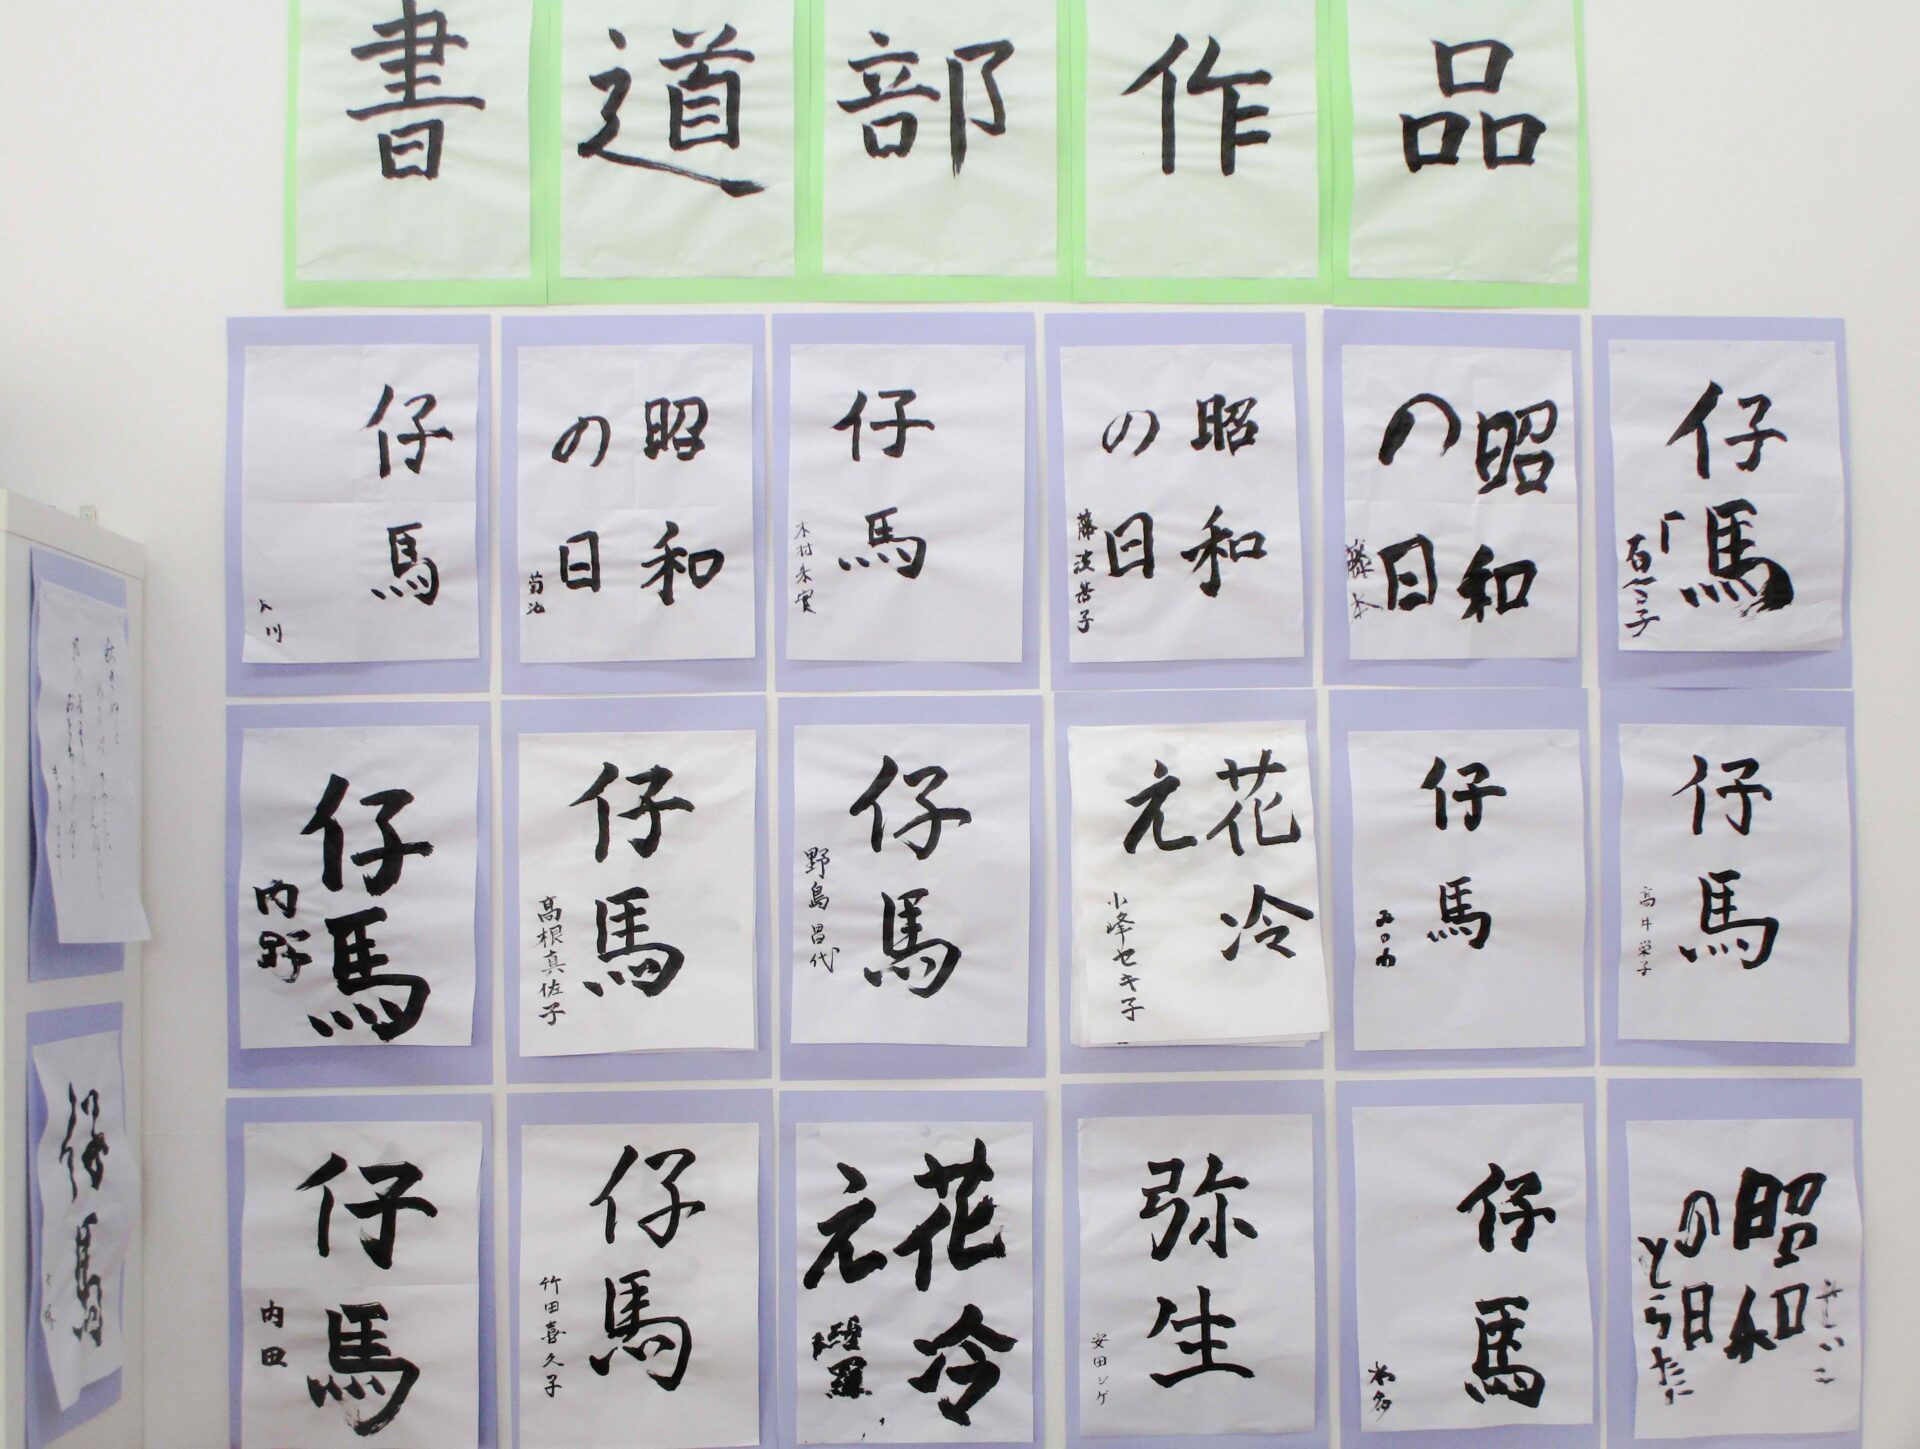 書道部作品
仔馬
大川
昭和
の日
菊池
仔馬
木村
昭和
の日
藤波
昭和
の日
藤本
仔馬
百合子
仔馬
内野
仔馬
高根真佐子
仔馬
野島昌代
花冷
え
小峰セキ子
仔馬
みのわ
仔馬
高井栄子
仔馬
内田
仔馬
竹田喜久子
花冷
え
弥生
安田シゲ
仔馬
昭和
の日
仔馬